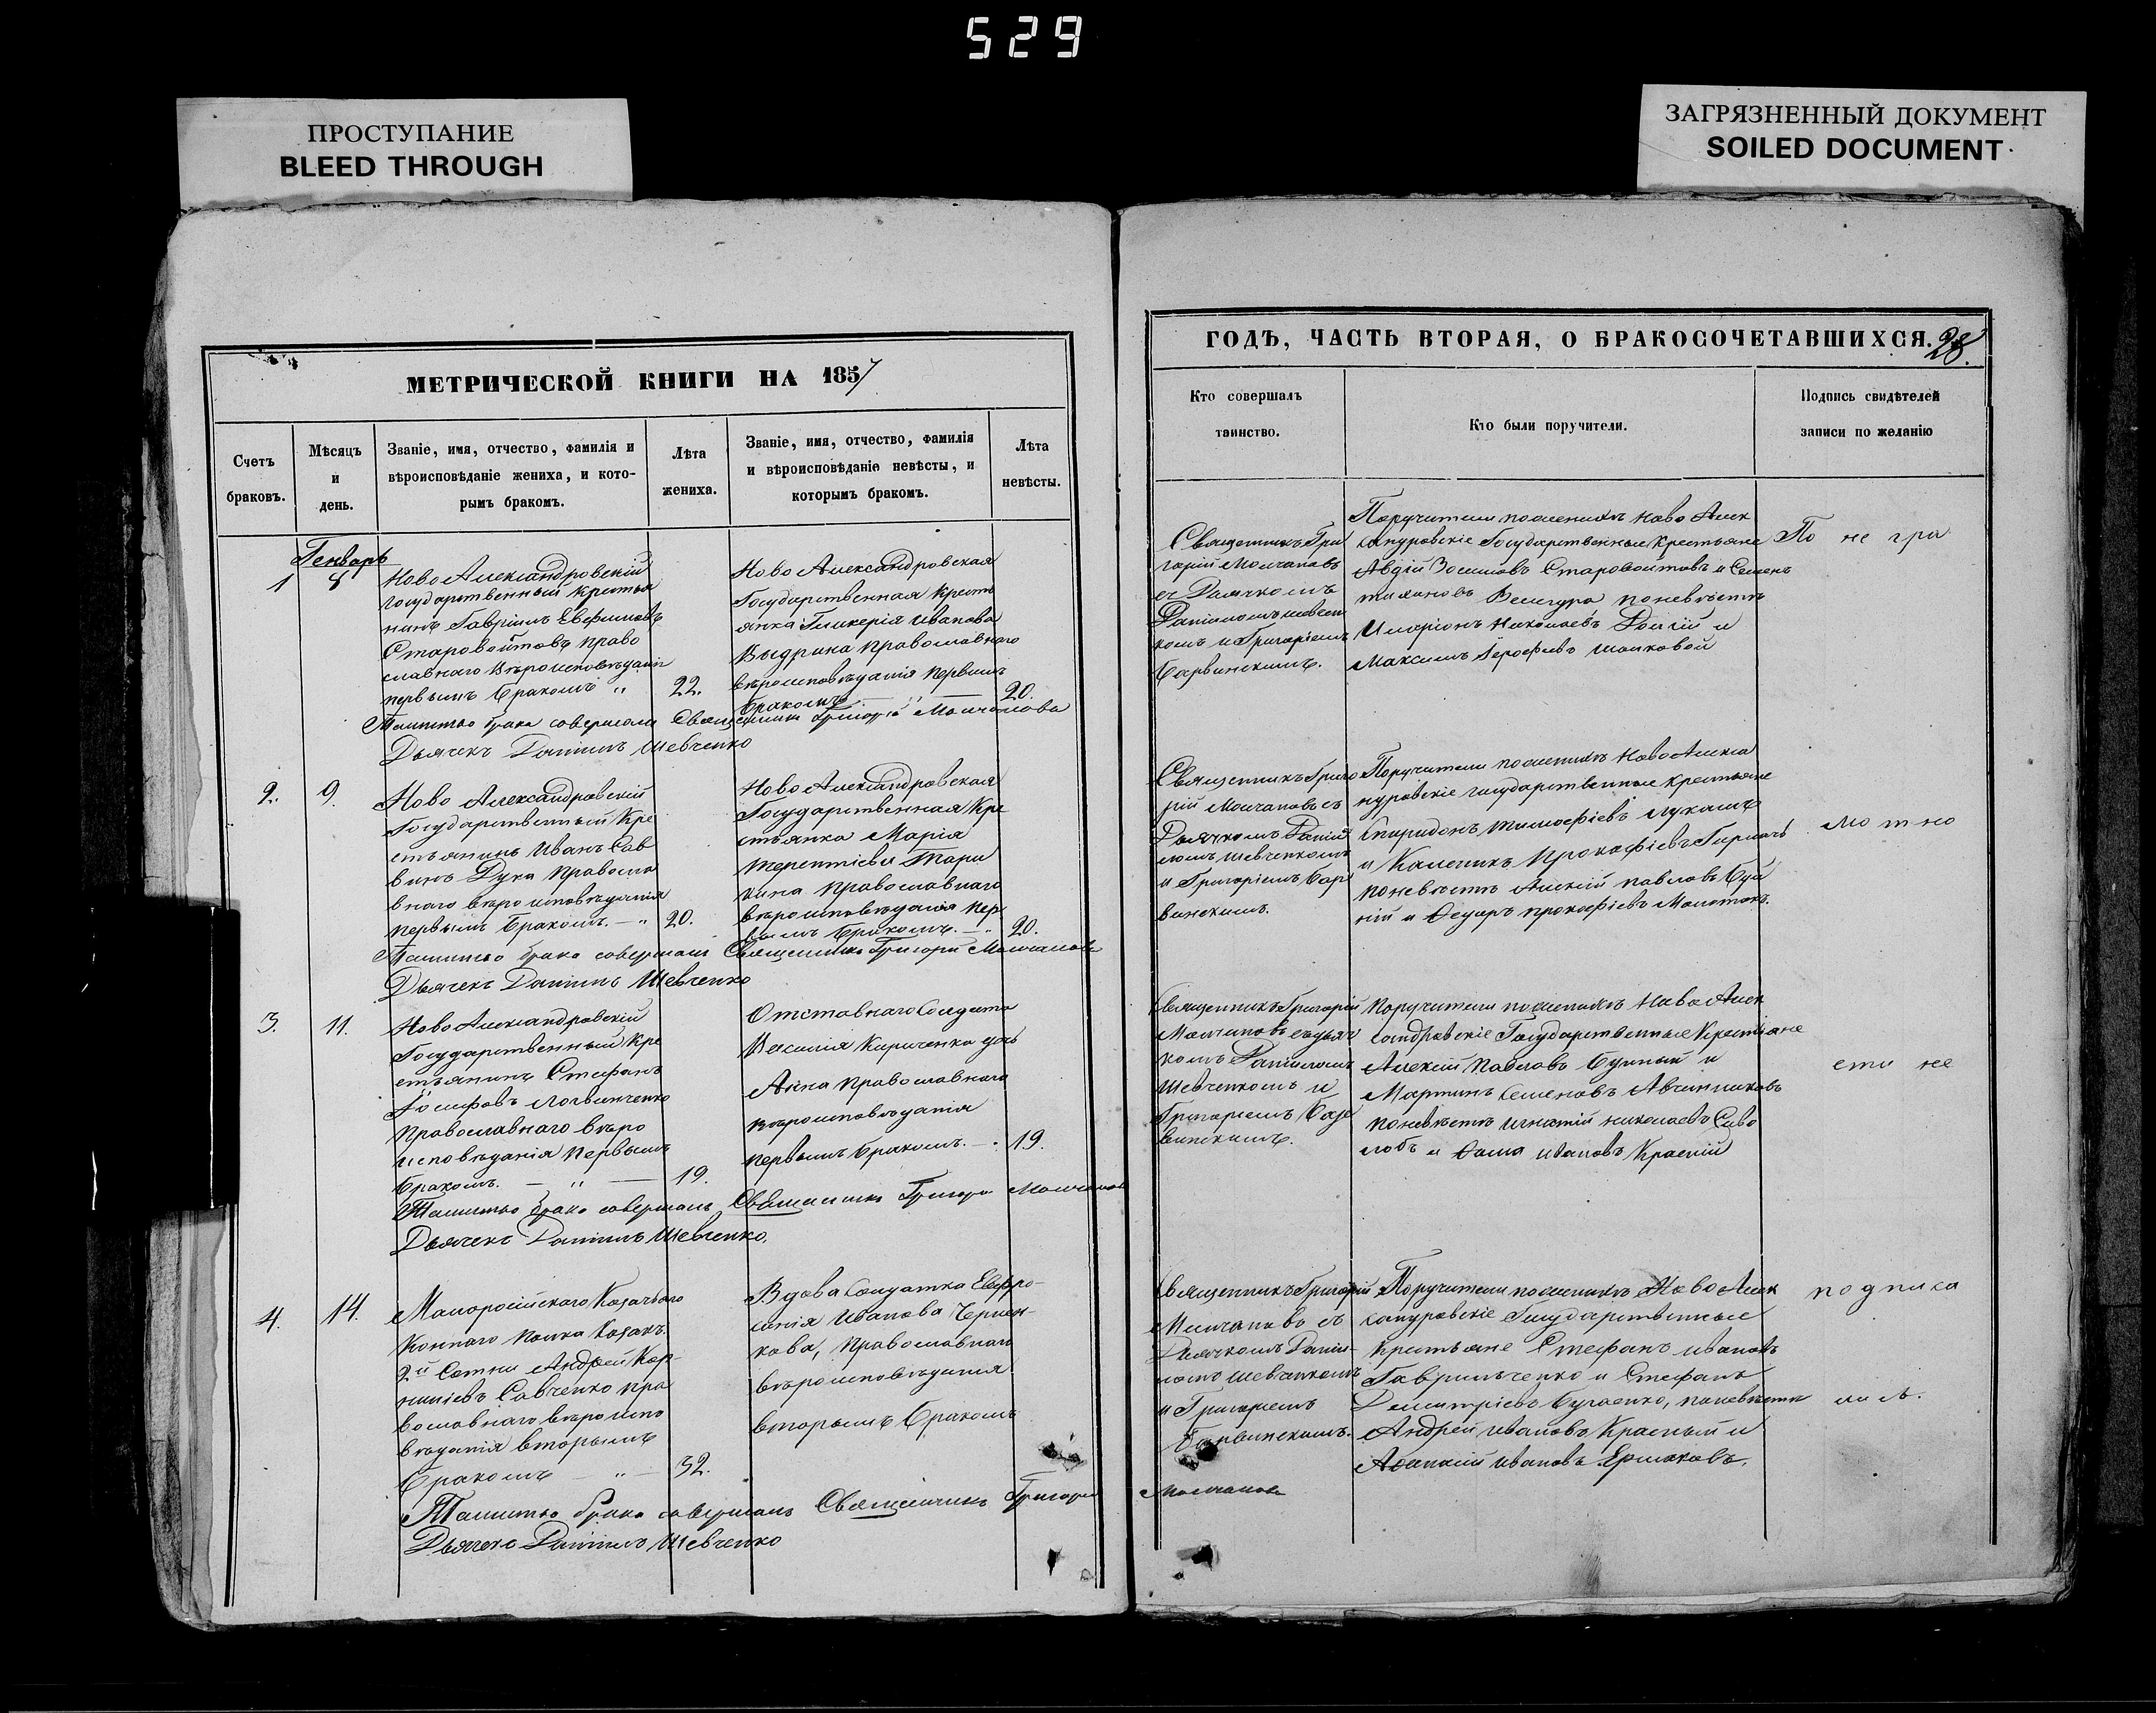 529
ПРОСТУПАНИЕ
BLEED THROUGH
ЗАГРЯЗНЕННЫЙ ДОКУМЕНТ
SOILED DOCUMENT
МЕТРИЧЕСКОЙ КНИГИ НА 1857
Счетъ браковъ.
Мѣсяцъ и день.
Званіе, имя, отчество, фамилія и
вѣроисповѣданіе жениха, и кото-
рымъ бракомъ.
Лѣта жениха.
Званіе, имя, отчество, фамилія
и вѣроисповѣданіе невѣсты, и
которымъ бракомъ.
Лѣта невѣсты.
Генварь
1
8
Ново Александровскій
государственный крестья
нинъ Гавріилъ Евфимовъ
Старовойтовъ право
славнаго вѣроисповѣданія
первымъ бракомъ " 22.
Ново Александровская
Государственная кресть
янка Гликерія Иванова
Выдрина православнаго
вѣроисповѣданія первымъ
бракомъ " 20.
Таинство брака совершалъ Священникъ Григорій Молчановъ
Дьячекъ Даніилъ Шевченко
2.
9.
Ново Александровскій
Государственный Кре
стьянинъ Иванъ Сав
винъ Дука правосла
внаго вѣроисповѣданія
первымъ бракомъ. — " 20.
Ново Александровская
Государственная Кре
стьянка Марія
Терентіева
православнаго
вѣроисповѣданія пер
вымъ бракомъ. — " 20.
Таинство брака совершалъ Священникъ Григорій Молчановъ
Дьячекъ Даніилъ Шевченко
3.
11.
Ново Александровскій
Государственный Кре
стьянинъ Стефанъ
Іосифовъ Логвинченко
православнаго вѣро
исповѣданія первымъ
бракомъ. — " — 19.
Отставнаго Солдата
Василія Кириченка дочь
Анна православнаго
вѣроисповѣданія
первымъ бракомъ. — " 19.
Таинство брака совершалъ Священникъ Григорій Молчановъ
Дьячекъ Даніилъ Шевченко.
4.
14.
Малоросійскаго Козачьяго
Коннаго полка Козакъ
2й Сотни Андрей Кор-
ниліевъ Савченко пра
вославнаго вѣроиспо
вѣданія вторымъ
бракомъ — " — 32.
Вдова Солдатка Евфро-
синія Иванова
кова, православнаго
вѣроисповѣданія
вторымъ бракомъ
Таинство брака совершалъ Священникъ Григорій Молчановъ
Дьячекъ Даніилъ Шевченко
ГОДѢ, ЧАСТЬ ВТОРАЯ, О БРАКОСОЧЕТАВШИХСЯ.
28.
Кто совершалъ
таинство.
Кто были поручители.
Подпись свидѣтелей
записи по желанію
Священникъ Гри
горій Молчановъ
съ Дьячкомъ
Даніиломъ Шевчен
комъ и Григоріемъ
Барвинскимъ.
Поручители по женихѣ Ново Алек
сандровскіе Государственные Крестьяне
Авдій Старовойтовъ и Семенъ
Венгура по невѣстѣ
Иларіонъ Николаевъ Долгій и
Максимъ Ерофеевъ
По не гра
Священникъ Григо
рій Молчановъ съ
Дьячкомъ Даніи
ломъ Шевченкомъ
и Григоріемъ Бар
винскимъ.
Поручители по женихѣ Ново Алекса
ндровскіе государственные крестьяне
Спиридонъ Тимофѣевъ Лукашъ
и Калиникъ Прокофіевъ
по невѣстѣ Алексій Павловъ Буй
ній и Ѳедоръ Прокофіевъ
мотно
Священникъ Григорій
Молчановъ съ дьяч
комъ Даніиломъ
Шевченкомъ и
Григоріемъ Бар
винскимъ.
Поручители по женихѣ Ново Алек
сандровскіе Государственные Крестьяне
Алексій Павловъ Буйный и
Мартинъ Семеновъ Авчинниковъ
по невѣстѣ Игнатій Николаевъ Сиво
лобъ и Ѳома Ивановъ Красній
сти не
Священникъ Григорій
Молчановъ съ
Дьячкомъ Даніи-
ломъ Шевченкомъ
и Григоріемъ
Барвинскимъ.
Поручители по женихѣ Ново Алек
сандровскіе Государственные
Крестьяне Стефанъ Ивановъ
Гаврильченко и Стефанъ
Димитріевъ Бугаенко, по невѣстѣ
Андрей Ивановъ Красный и
Ивановъ Ермаковъ.
подписа
лись.